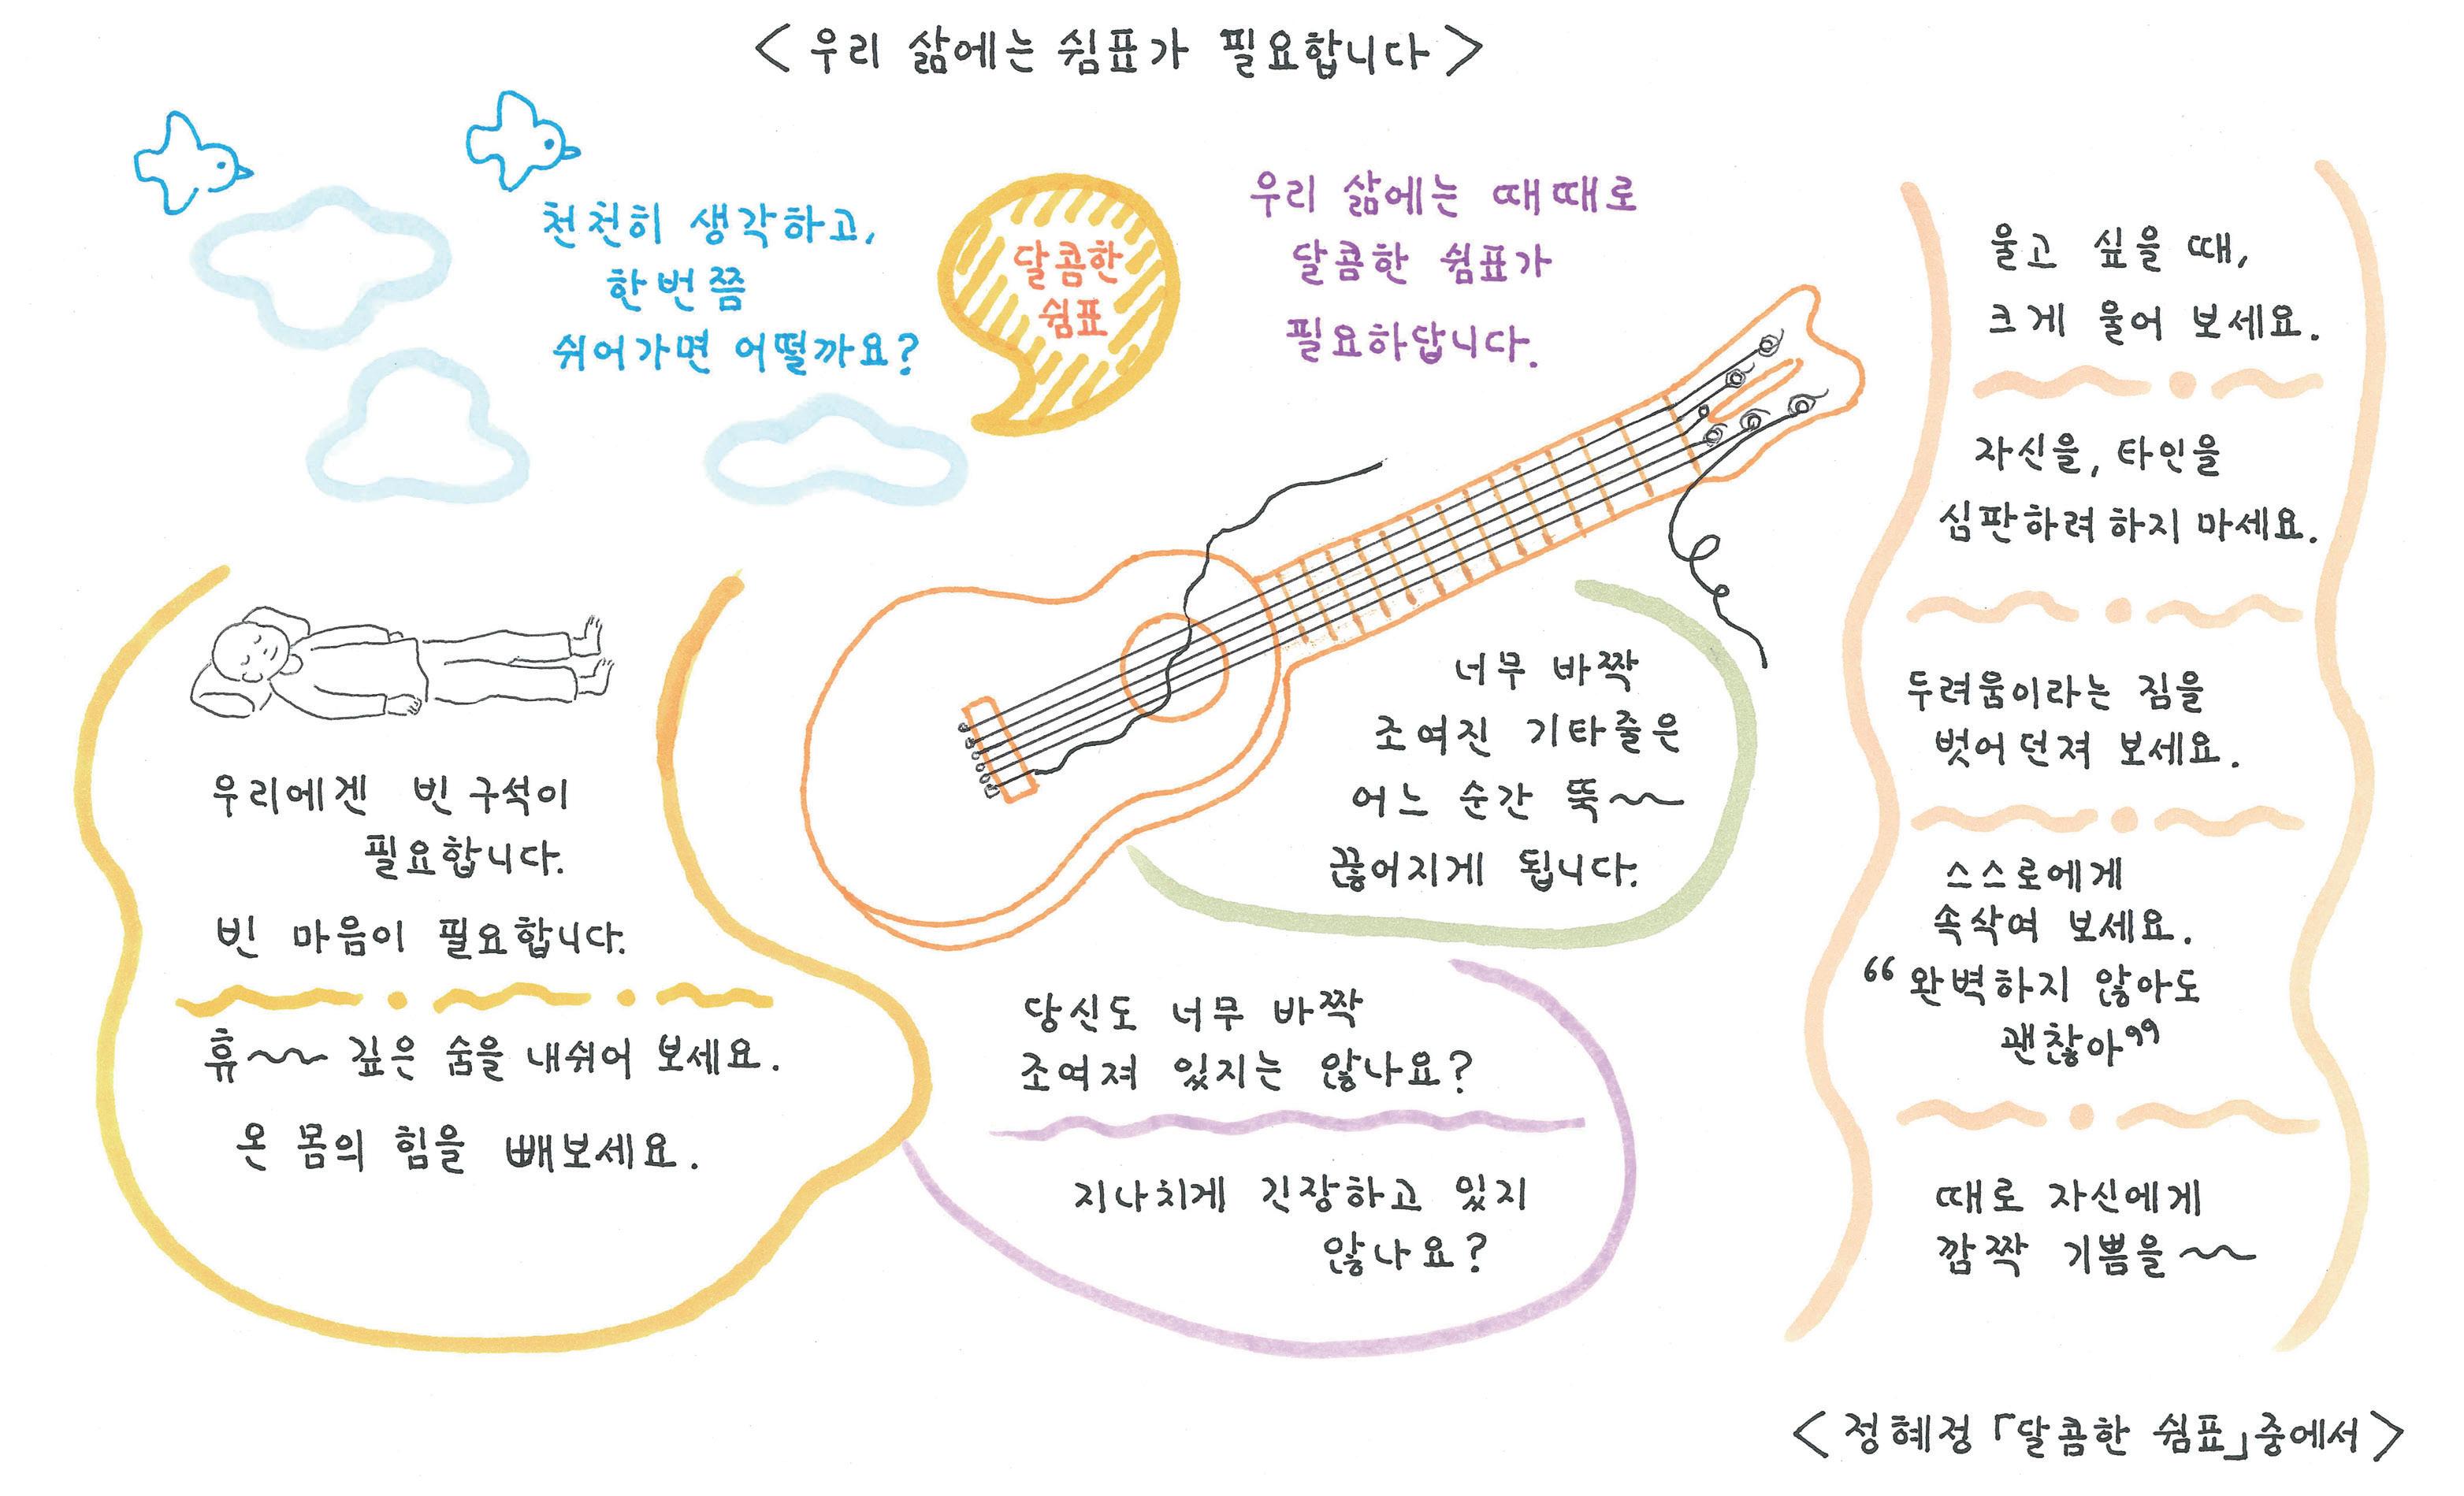 <우리 삶에는 쉼표가 필요합니다>
천천히 생각하고,
한번쯤
쉬어가면 어떨까요?
달콤한
쉼표
우리 삶에는 때때로
달콤한 쉼표가
필요하답니다.
너무 바짝
조여진 기타줄은
어느 순간 뚝~~
끊어지게 됩니다.
당신도 너무 바짝
조여져 있지는 않나요?
지나치게 긴장하고 있지
않나요?
우리에겐 빈 구석이
필요합니다.
빈 마음이 필요합니다.
휴~~ 깊은 숨을 내쉬어 보세요.
온 몸의 힘을 빼보세요.
울고 싶을 때,
크게 울어 보세요.
자신을, 타인을
심판하려 하지 마세요.
두려움이라는 짐을
벗어 던져 보세요.
스스로에게
속삭여 보세요.
“완벽하지 않아도
괜찮아”
때로 자신에게
깜짝 기쁨을~~
<정혜정「달콤한 쉼표」중에서>